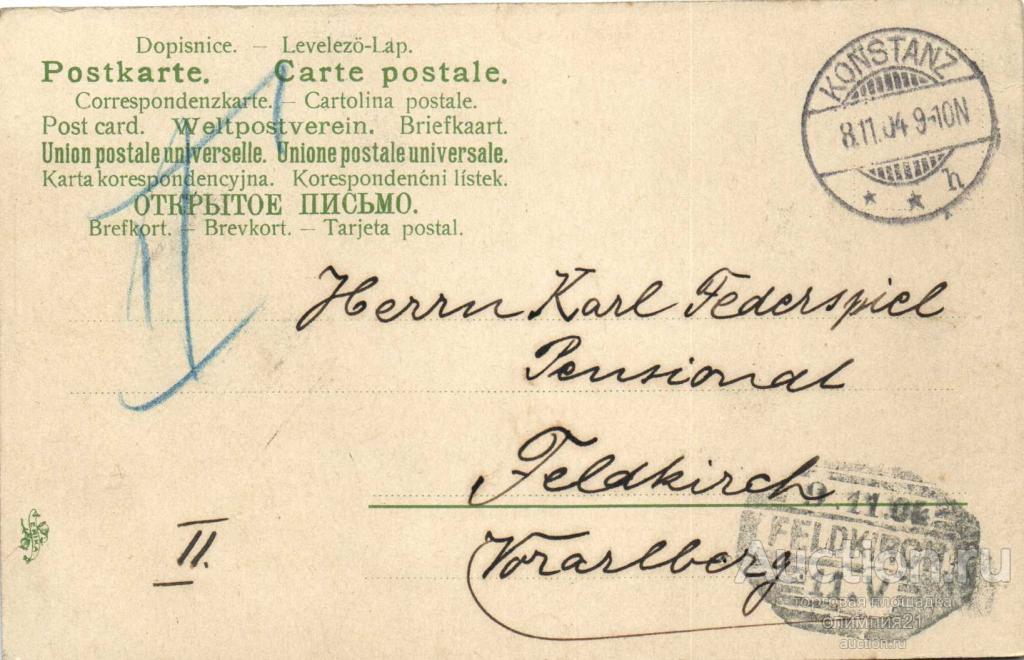 Dopisnice. — Levelezö-Lap.
Postkarte. Carte postale.
Correspondenzkarte. — Cartolina postale.
Post card. Weltpostverein. Briefkaart.
Union postale universelle. Unione postale universale.
Karta korespondencyjna. Korespondenční lístek.
ОТКРЫТОЕ ПИСЬМО.
Brefkort. — Brevkort. — Tarjeta postal.
KONSTANZ
8.11.04 9-10N
* * h
Herrn Karl Federspiel
Pensionat
Feldkirch
Vorarlberg.
II.
9.11.04
FELDKIRCH
11.V
Auction.ru
торговая площадка
олимпия21
auction.ru